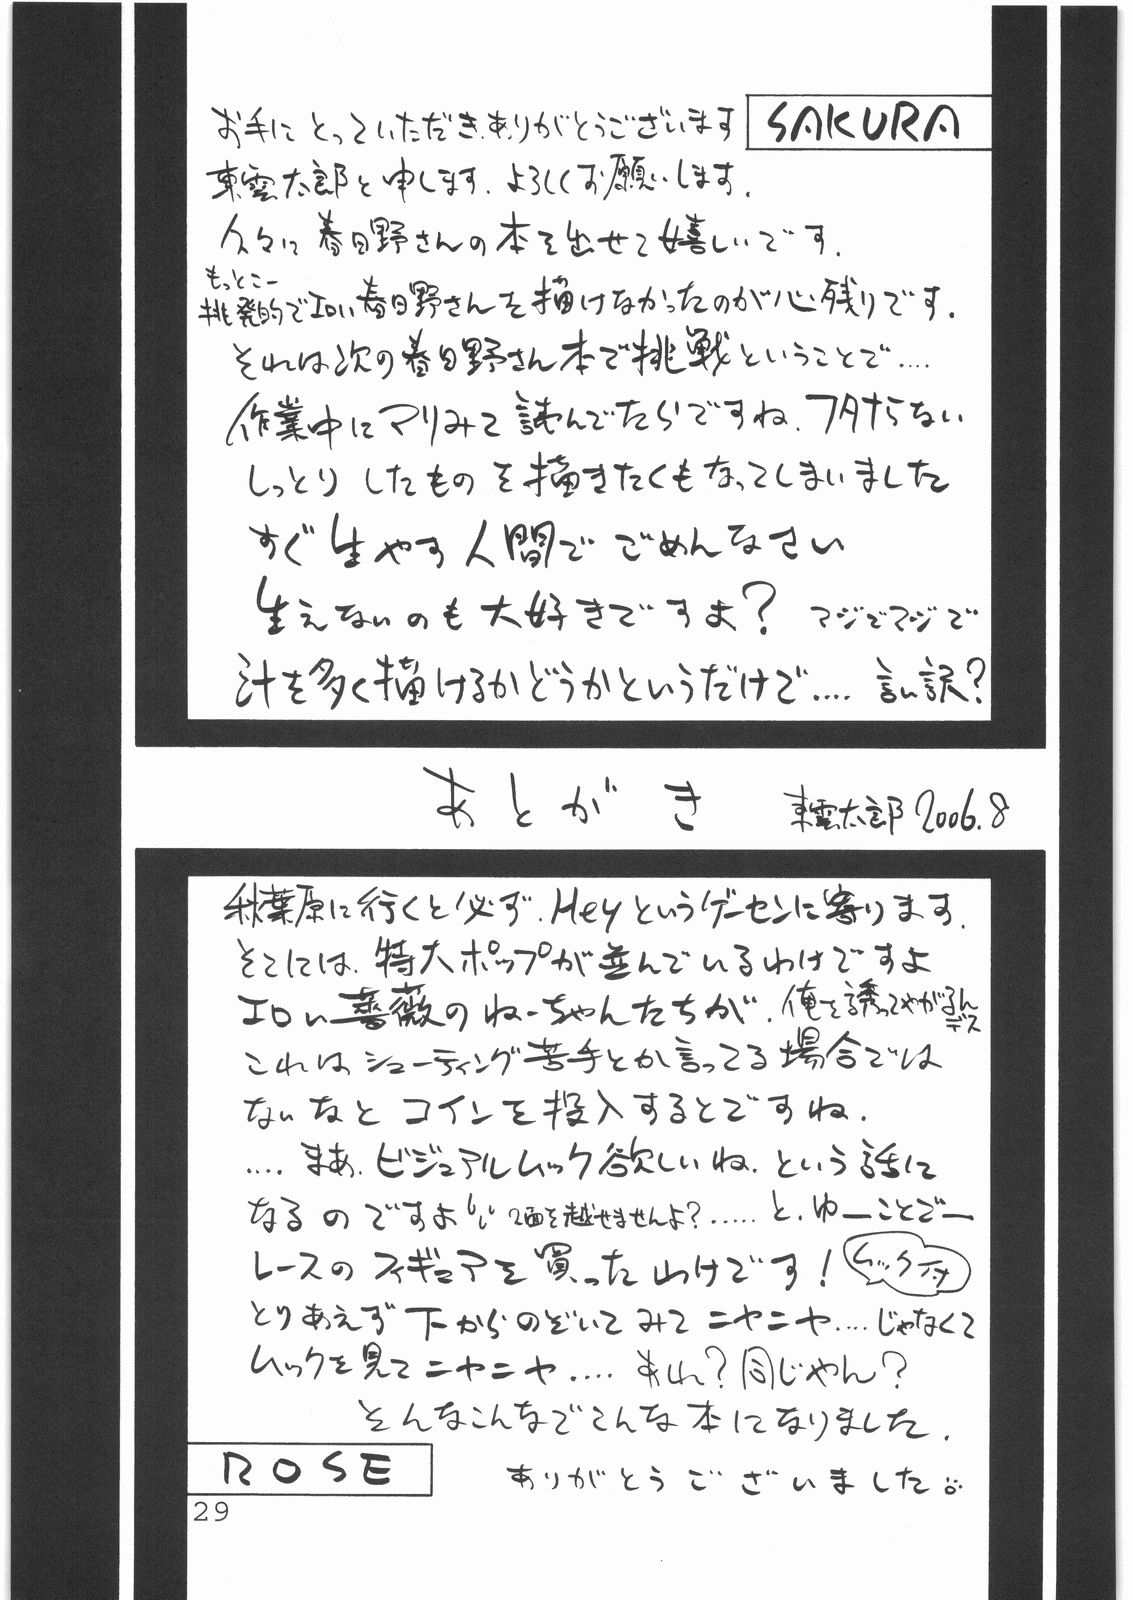 SAKURA
お手にとっていただき、ありがとうございます
東雲太郎と申します、よろしくお願いします、
久々に春日野さんの本を出せて嬉しいです、
もっとこー
挑発的でエロい春日野さんを描けなかったのが心残りです、
それは次の春日野さん本で挑戦ということで‥‥
作業中にマリみて読んでたらですね、フタナらない
しっとりしたものを描きたくもなってしまいました
すぐ生やす人間でごめんなさい
生えないのも大好きですよ？ マジでマジで
汁を多く描けるかどうかというだけで‥‥ 言い訳？
あとがき 東雲太郎 2006.8
秋葉原に行くと必ず、Heyというゲーセンに寄ります、
そこには、特大ポップが並んでいるわけですよ
エロい薔薇のねーちゃんたちが、俺を誘ってやがるんデス
これはシューティング苦手とか言ってる場合では
ないなと コインを投入するとですね、
‥‥まあ、ビジュアルムック欲しいね、という話に
なるのですよ 2面を越せませんよ？‥‥‥と、ゆーことでー
レースのフィギュアを買ったわけです！ ムック付
とりあえず下からのぞいてみてニヤニヤ‥‥じゃなくて
ムックを見てニヤニヤ‥‥ あれ？同じやん？
そんなこんなでこんな本になりました、
ROSE
ありがとうございました
29